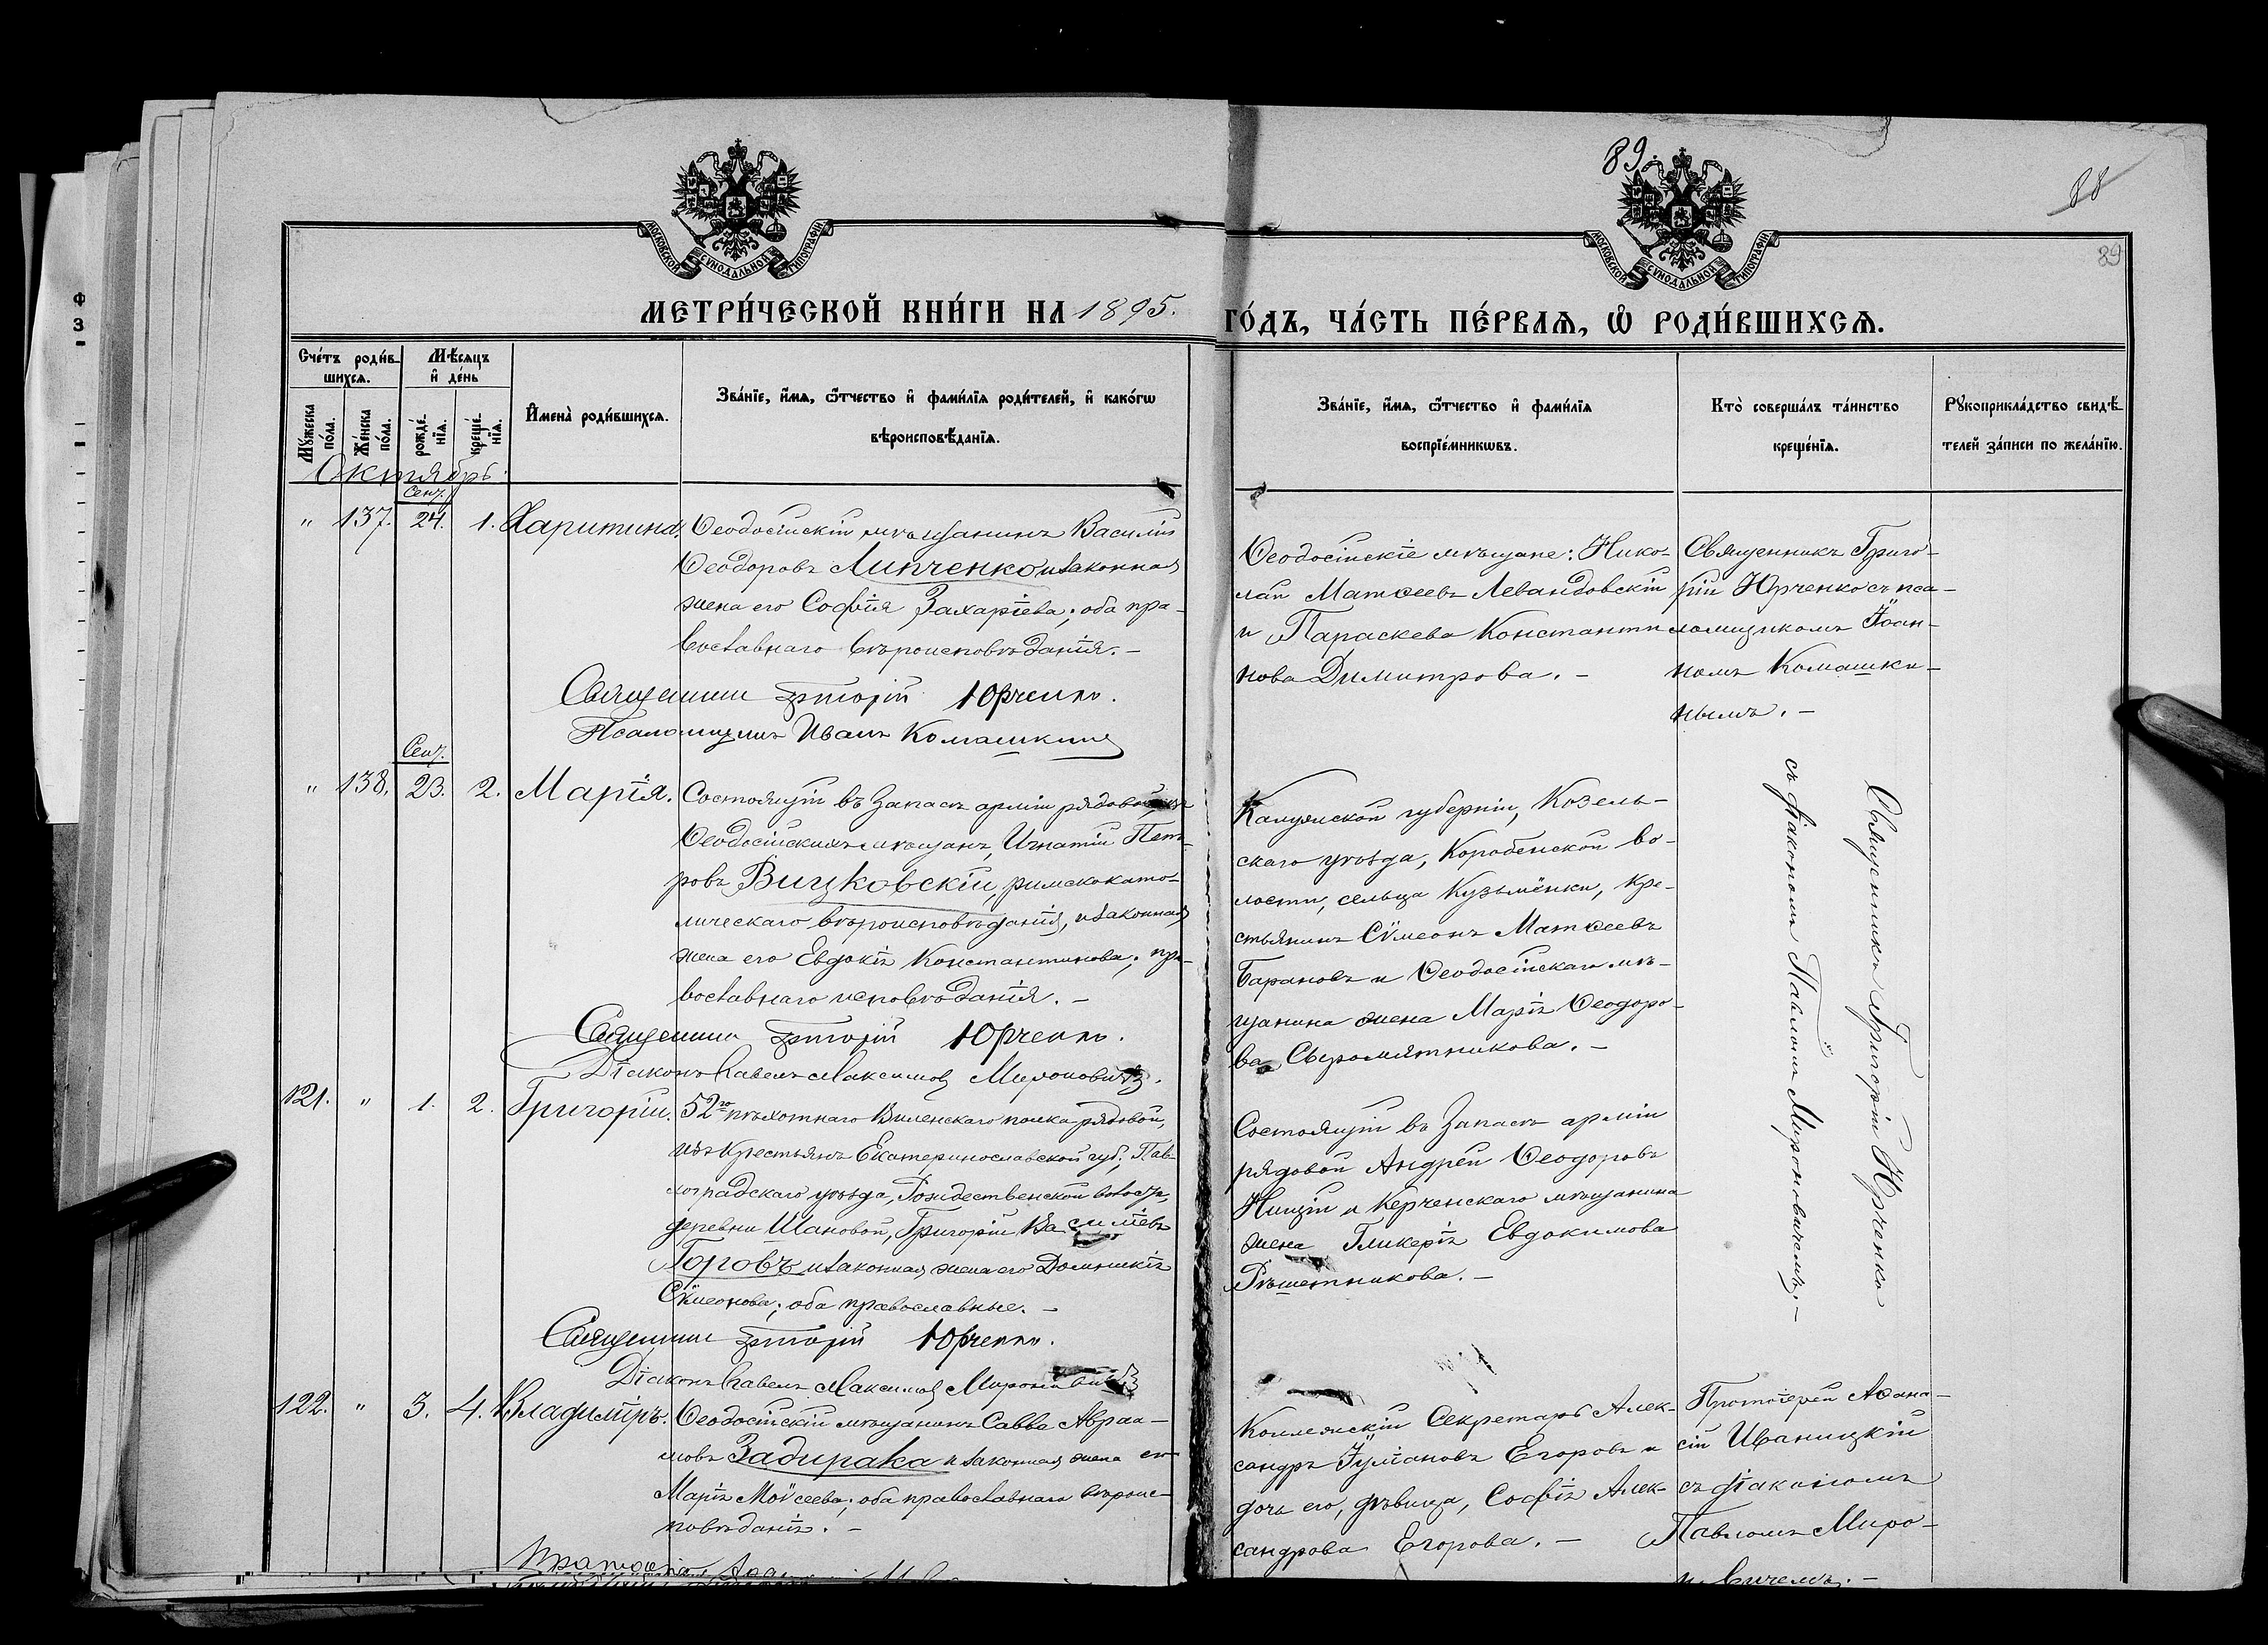 89.
88
89
МОСКОВСКОЙ СУНОДАЛЬНОЙ ТИПОГРАФІИ
МОСКОВСКОЙ СУНОДАЛЬНОЙ ТИПОГРАФІИ
МЕТРИ́ЧЕСКОЙ КНИ́ГИ НА 1895.
ГО́ДЪ, ЧА́СТЬ ПЕ́РВАѦ, Ѡ҆ РОДИ́ВШИХСѦ.
Сче́тъ роди́в-
шихсѧ.
Мѣ́сѧцъ
и҆ де́нь
Мꙋ́жеска
по́ла.
Же́нска
по́ла.
рожде́-
нїѧ.
креще́-
нїѧ.
И҆мена̀ роди́вшихсѧ.
Зва́нїе, и҆́мѧ, ѻ҆́тчество и҆ фами́лїѧ роди́телей, и҆ како́гѡ
вѣроисповѣ́данїѧ.
Зва́нїе, и҆́мѧ, ѻ҆́тчество и҆ фами́лїѧ
воспрїе́мникѡвъ.
Кто̀ соверша́лъ та́инство
креще́нїѧ.
Рꙋкоприкла́дство свидѣ́-
телей за́писи по жела́нїю.
Октябрь.
Сент.
" 137. 24. 1. Харитина.
Ѳеодосійскій мѣщанинъ Василій
Ѳеодоровъ Липченко и законная
жена его Софія Захаріева; оба пра-
вославнаго вѣроисповѣданія. –
Священникъ Григорій Юрченко.
Псаломщикъ Иванъ Комашкинъ
Ѳеодосійскіе мѣщане: Нико-
лай Матѳеевъ Левандовскій
и Параскева Константи
нова Димитрова. –
Священникъ Григо-
рій Юрченко съ пса-
ломщикомъ Іоан-
номъ Комашки-
нымъ. –
Сент.
" 138. 23. 2. Марія.
Состоящій въ запасѣ арміи рядовой, изъ
Ѳеодосійскихъ мѣщанъ, Игнатій Пет-
ровъ Вицковскій, римскокато-
лическаго вѣроисповѣданія, и законная
жена его Евдокія Константинова; пра-
вославнаго исповѣданія. –
Священникъ Григорій Юрченко.
Діаконъ Павелъ Максимовъ Мироновичъ.
Калужской губерніи, Козель-
скаго уѣзда, Коробенской во-
лости, сельца Кузьмёнки, кре-
стьянинъ Сѵмеонъ Матѳеевъ
Барановъ и Ѳеодосійскаго мѣ-
щанина жена Марія Ѳеодоро-
ва Сыромятникова. –
Священникъ Григорій Юрченко
съ діакономъ Павломъ Мироновичемъ. –
121. " 1. 2. Григорій.
52го пѣхотнаго Виленскаго полка рядовой,
изъ крестьянъ Екатеринославской губ., Пав-
лоградскаго уѣзда, Рождественской волости,
деревни Шановой, Григорій Васильевъ
Горовъ и законная жена его Домникія
Сѵмеонова; оба православные. –
Священникъ Григорій Юрченко.
Діаконъ Павелъ Максимовъ Мироновичъ
Состоящій въ запасѣ арміи
рядовой Андрей Ѳеодоровъ
Нищій и Керченскаго мѣщанина
жена Гликерія Евдокимова
Рѣшетникова. –
122. " 3. 4. Владиміръ.
Ѳеодосійскій мѣщанинъ Савва Авраа-
мовъ Задирака и законная жена его
Марія Моѵсеева; оба православнаго вѣроис-
повѣданія. –
Коллежскій Секретарь Алек-
сандръ Іуліановъ Егоровъ и
дочь его, дѣвица, Софія Алек-
сандрова Егорова. –
Протоіерей Аѳана-
сій Иваницкій
съ діакономъ
Павломъ Миро-
новичемъ. –